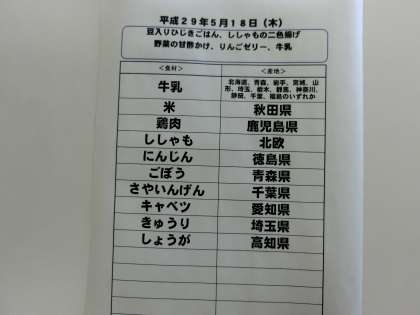 平成29年5月18日（木）
豆入りひじきごはん、ししゃもの二色揚げ
野菜の甘酢かけ、りんごゼリー、牛乳
＜食材＞ ＜産地＞
牛乳 北海道、青森、岩手、宮城、山
形、埼玉、栃木、群馬、神奈川、
静岡、千葉、福島のいずれか
米 秋田県
鶏肉 鹿児島県
ししゃも 北欧
にんじん 徳島県
ごぼう 青森県
さやいんげん 千葉県
キャベツ 愛知県
きゅうり 埼玉県
しょうが 高知県